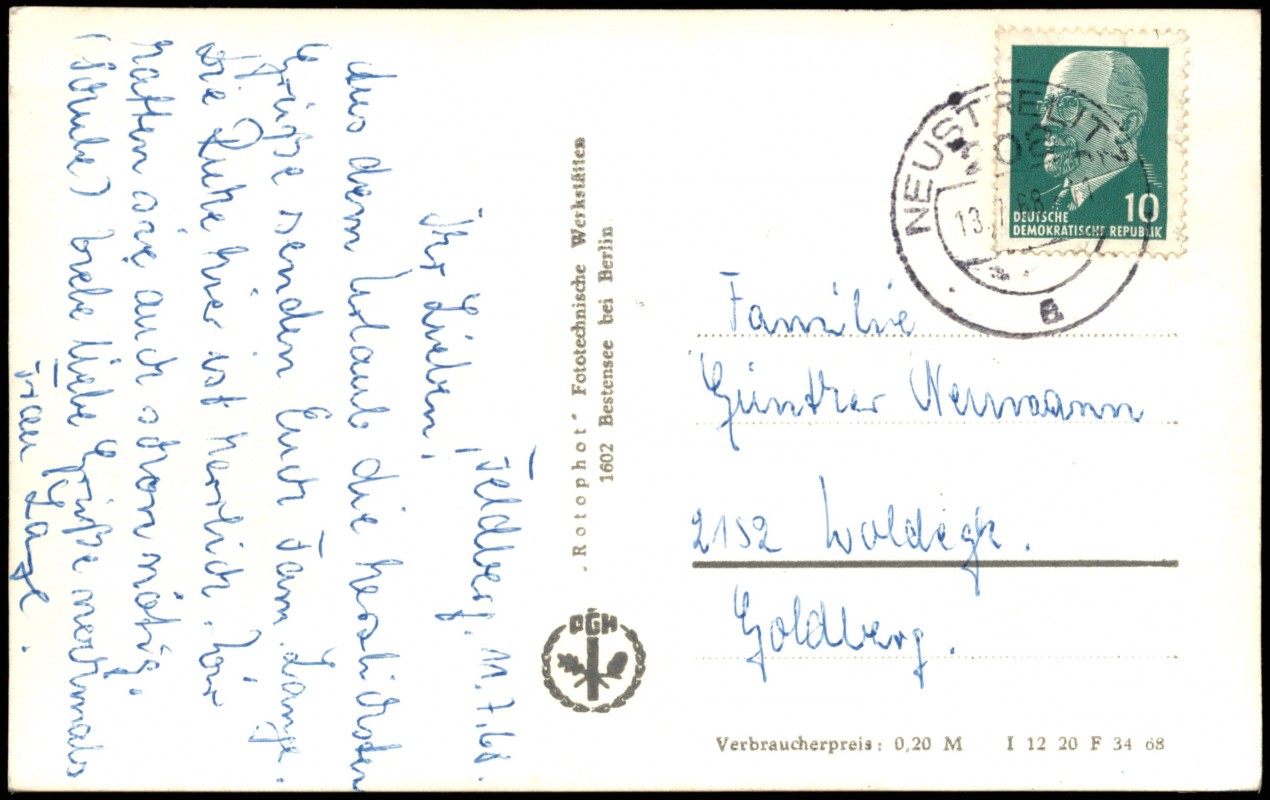 Feldberg, 11.7.68.
Ihr Lieben!
Aus dem Urlaub die herzlichsten
Grüße senden Euch Fam. Lange.
Die Ruhe hier ist herrlich. Wir
hatten sie auch schon nötig.
(Schule) Liebe Grüße nochmals
Frau Lange.
"Rotophot" Fototechnische Werkstätten
1602 Bestensee bei Berlin
PGH
NEUSTRELITZ
13.
68
a
10
DEUTSCHE
DEMOKRATISCHE REPUBLIK
Familie
Günther Neumann
2152 Woldegk.
Goldberg.
Verbraucherpreis: 0,20 M I 12 20 F 34 68